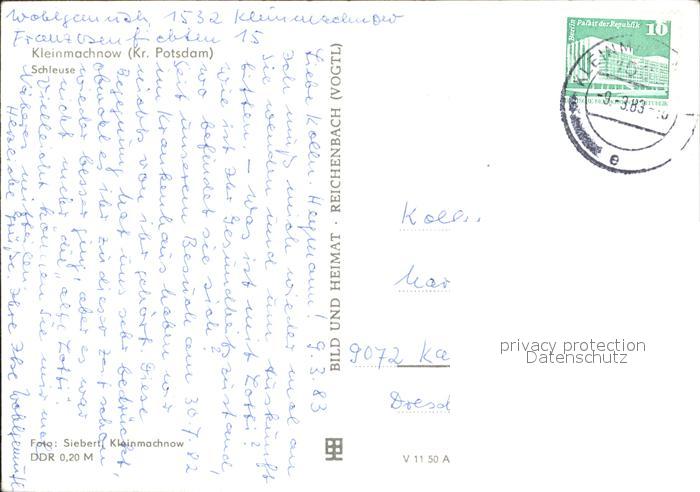 Wohlgemuth, 1532 Kleinmachnow
Franzosenfichten 15
Kleinmachnow (Kr. Potsdam)
Schleuse
Liebe Kolln. Hegmann! 9.3.83
Ich muß mich wieder mal an
Sie wenden und um Auskunft
bitten. – Was ist mit Lotti?
Wie ist Ihr Gesundheitszustand,
wo befindet sie sich?
Seit unserem Besuch am 30.7.82
im Krankenhaus haben wir
nichts von ihr gehört. Diese
Begegnung hat uns sehr bedrückt,
obwohl es ihr zu dieser Zeit schon
wieder besser ging, aber es war
nicht mehr die "alte Lotti".
Vielleicht können Sie mir mal
Näheres mitteilen.
Herzliche Grüße, Ihre Wohlgemuth
BILD UND HEIMAT · REICHENBACH (VOGTL)
Berlin, Palast der Republik 10
KLEINM
-9.-3.83
e
Kolln.
Mar
9072 Ka
Dresd
privacy protection
Datenschutz
Foto: Siebert, Kleinmachnow
DDR 0,20 M
V 11 50 A